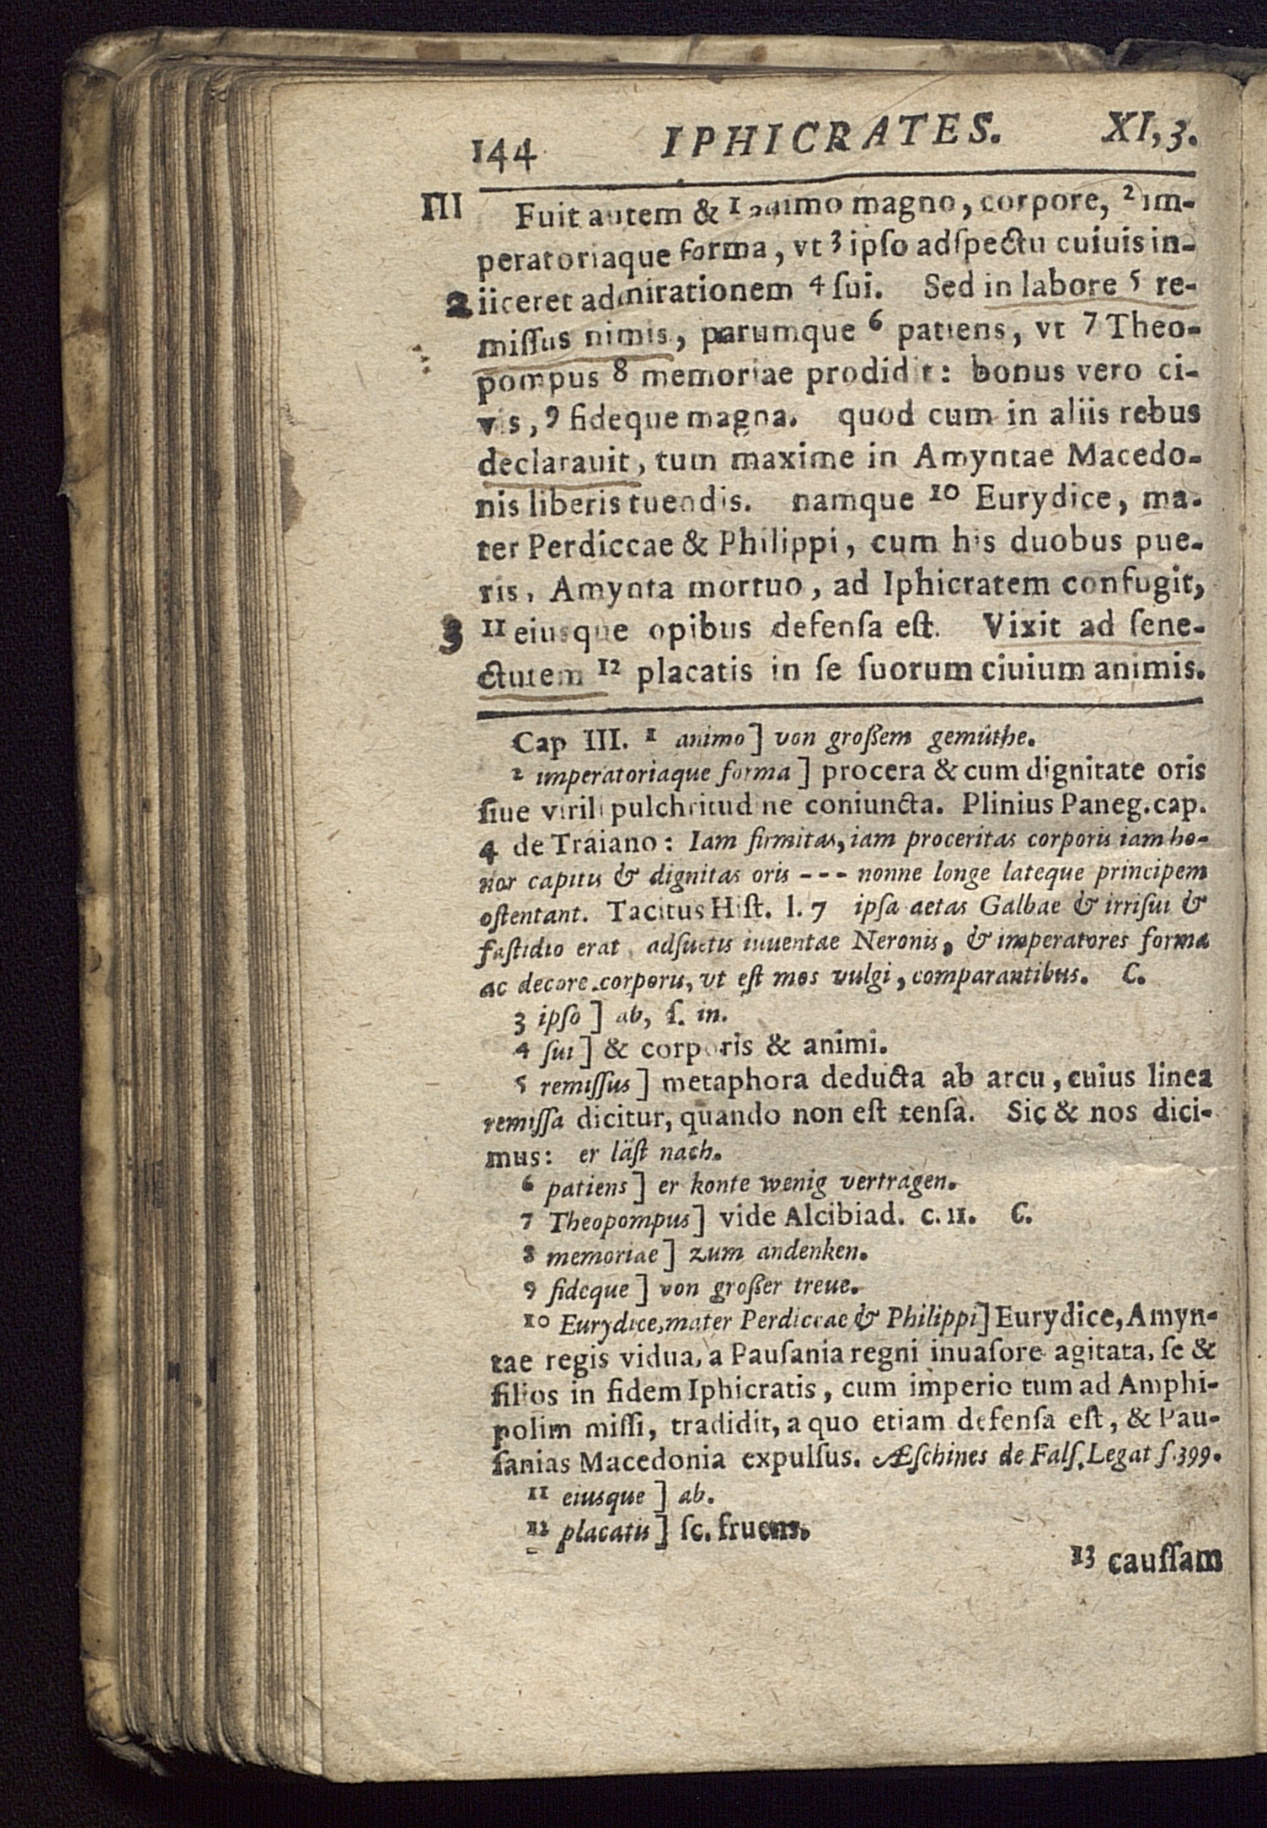 144 IPHICRATES. XI,3.
III Fuit autem & 1 animo magno, corpore, 2 im-
peratoriaque forma, vt 3 ipſo adſpectu cuiuis in-
2 iiceret admirationem 4 ſui. Sed in labore 5 re-
miſſus nimis, parumque 6 patiens, vt 7 Theo-
pompus 8 memoriae prodidit: bonus vero ci-
vis, 9 fideque magna. quod cum in aliis rebus
declarauit, tum maxime in Amyntae Macedo-
nis liberis tuendis. namque 10 Eurydice, ma-
ter Perdiccae & Philippi, cum his duobus pue-
ris, Amynta mortuo, ad Iphicratem confugit,
3 11 eiusque opibus defenſa eſt. Vixit ad ſene-
ctutem 12 placatis in ſe ſuorum ciuium animis.
Cap III. 1 animo] von großem gemüthe.
2 imperatoriaque forma] procera & cum dignitate oris
ſiue virili pulchritudine coniuncta. Plinius Paneg. cap.
4 de Traiano: Iam firmitas, iam proceritas corporis iam ho-
nor capitis & dignitas oris --- nonne longe lateque principem
oſtentant. Tacitus Hiſt. l. 7 ipſa aetas Galbae & irriſui &
faſtidio erat, adſuetis iuuentae Neronis, & imperatores forma
ac decore corporis, vt eſt mos vulgi, comparantibus. C.
3 ipſo] ab, ſ. in.
4 ſui] & corporis & animi.
5 remiſſus] metaphora deducta ab arcu, cuius linea
remiſſa dicitur, quando non eſt tenſa. Sic & nos dici-
mus: er läſt nach.
6 patiens] er konte wenig vertragen.
7 Theopompus] vide Alcibiad. c. 11. C.
8 memoriae] zum andenken.
9 fideque] von großer treue.
10 Eurydice, mater Perdiccae & Philippi] Eurydice, Amyn-
tae regis vidua, a Pauſania regni inuaſore agitata, ſe &
filios in fidem Iphicratis, cum imperio tum ad Amphi-
polim miſſi, tradidit, a quo etiam defenſa eſt, & Pau-
ſanias Macedonia expulſus. Æſchines de Falſ. Legat ſ. 399.
11 eiusque] ab.
12 placatis] ſc. fruens.
13 cauſſam